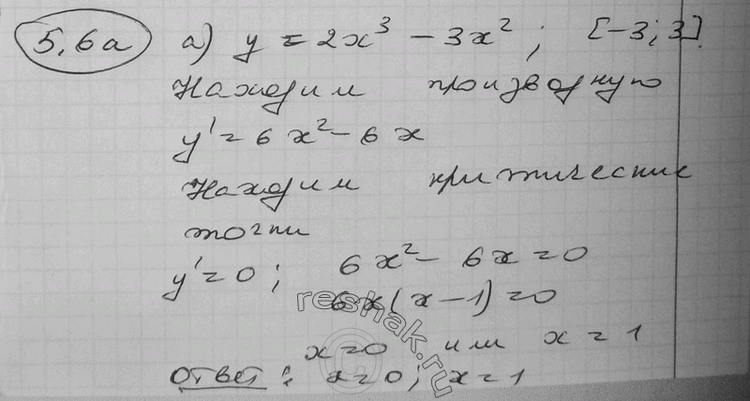 5,6а а) y = 2x³ - 3x² ; [-3; 3].
Находим производную
y' = 6x² - 6x
Находим критические
точки
y' = 0 ; 6x² - 6x = 0
6x(x - 1) = 0
x = 0 или x = 1
Ответ: x = 0 ; x = 1
reshak.ru